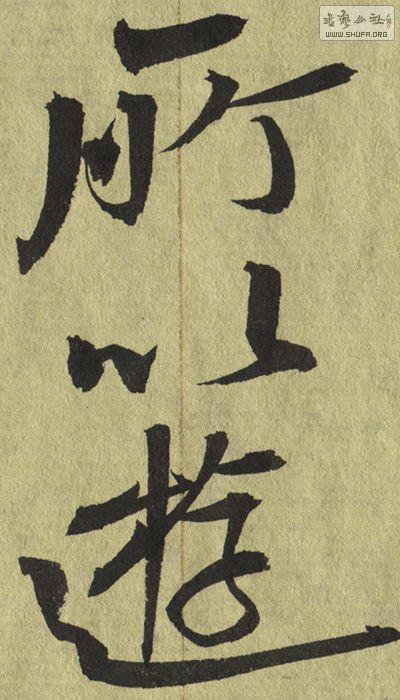 所以遊
书艺公社
WWW.SHUFA.ORG